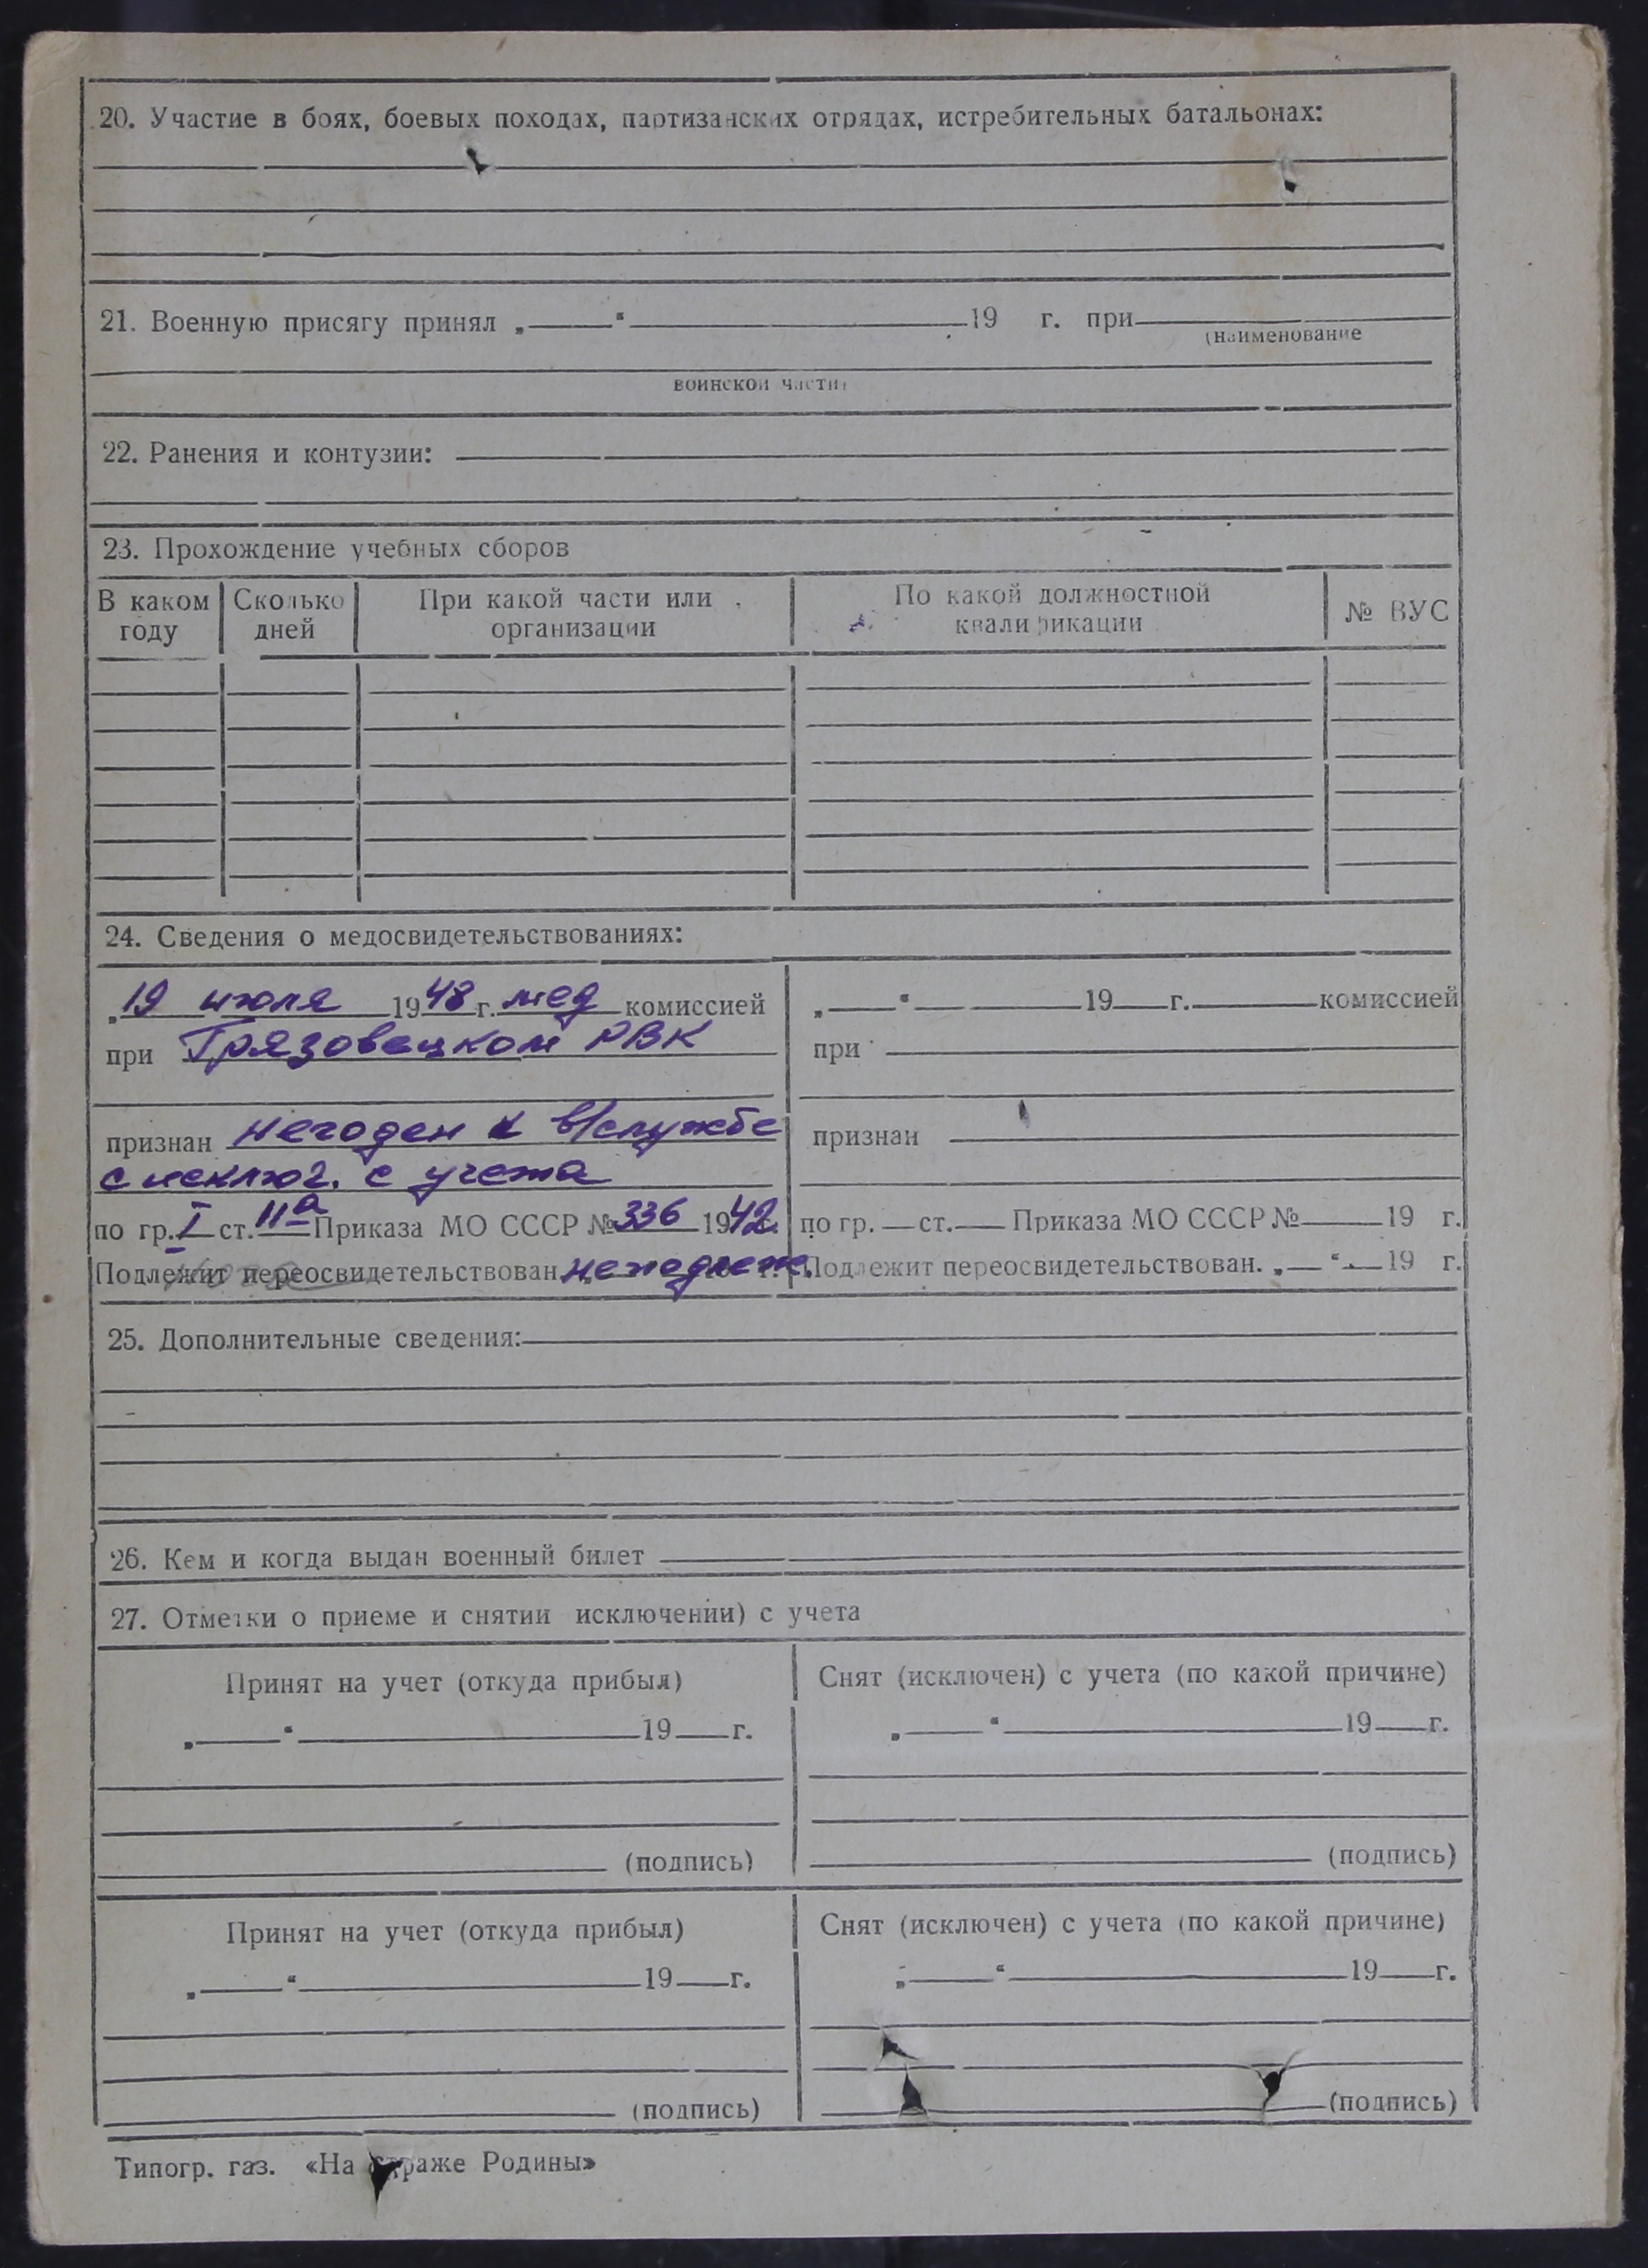 20. Участие в боях, боевых походах, партизанских отрядах, истребительных батальонах:
21. Военную присягу принял „ “ 19 г. при
(наименование
воинской части)
22. Ранения и контузии:
23. Прохождение учебных сборов
В каком году Сколько дней При какой части или организации По какой должностной квалификации № ВУС
24. Сведения о медосвидетельствованиях:
„19 июля 1948 г. мед комиссией
при Грязовецком РВК
признан негоден к в/службе
с исключ. с учета
по гр. I ст. 11а Приказа МО СССР № 336 1942 г.
Подлежит переосвидетельствован. неподлеж.
„ “ 19 г. комиссией
при
признан
по гр. ст. Приказа МО СССР № 19 г.
Подлежит переосвидетельствован. „ “ 19 г.
25. Дополнительные сведения:
26. Кем и когда выдан военный билет
27. Отметки о приеме и снятии исключении) с учета
Принят на учет (откуда прибыл)
„ “ 19 г.
(подпись)
Снят (исключен) с учета (по какой причине)
„ “ 19 г.
(подпись)
Принят на учет (откуда прибыл)
„ “ 19 г.
(подпись)
Снят (исключен) с учета (по какой причине)
„ “ 19 г.
(подпись)
Типогр. газ. «На страже Родины»